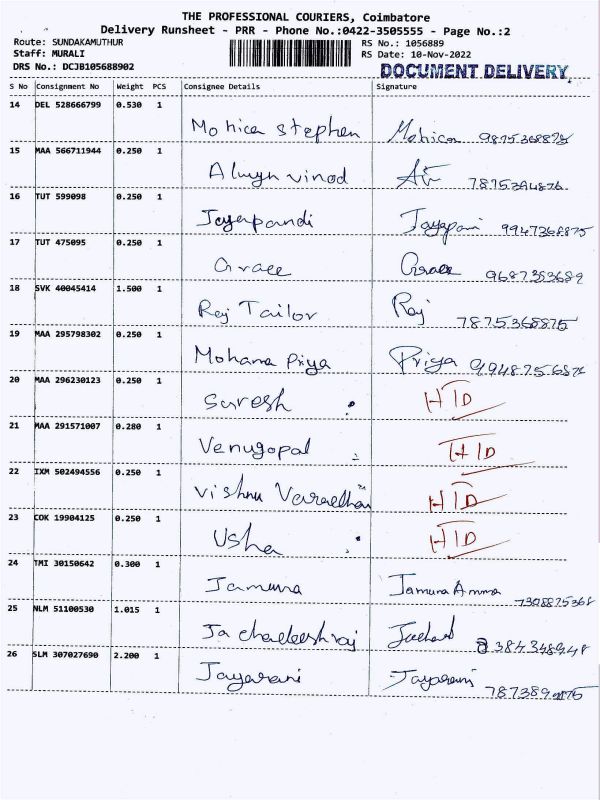 THE PROFESSIONAL COURIERS, Coimbatore
Delivery Runsheet - PRR - Phone No.:0422-3505555 - Page No.:2
Route: SUNDAKAMUTHUR RS No.: 1056889
Staff: MURALI RS Date: 10-Nov-2022
DRS No.: DCJB105688902 DOCUMENT DELIVERY
S No Consignment No Weight PCS Consignee Details Signature
14 DEL 528666799 0.530 1
Mohica Stephen Mohica 9875368875
15 MAA 566711944 0.250 1
Alwyn vinod
16 TUT 599098 0.250 1
Jayapandi 9947368875
17 TUT 475095 0.250 1
Grace Grace 9687353689
18 SVK 40045414 1.500 1
Raj Tailor Raj 7875368875
19 MAA 295798302 0.250 1
Mohana Priya Priya
20 MAA 296230123 0.250 1
Suresh HID
21 MAA 291571007 0.280 1
Venugopal HID
22 IXM 502494556 0.250 1
Vishnu Varadhan HID
23 COK 19904125 0.250 1
Usha HID
24 TMI 30150642 0.300 1
Jamuna Jamuna Amma 7308875368
25 NLM 51100530 1.015 1
26 SLM 307027690 2.200 1
Jayarani Jayarani